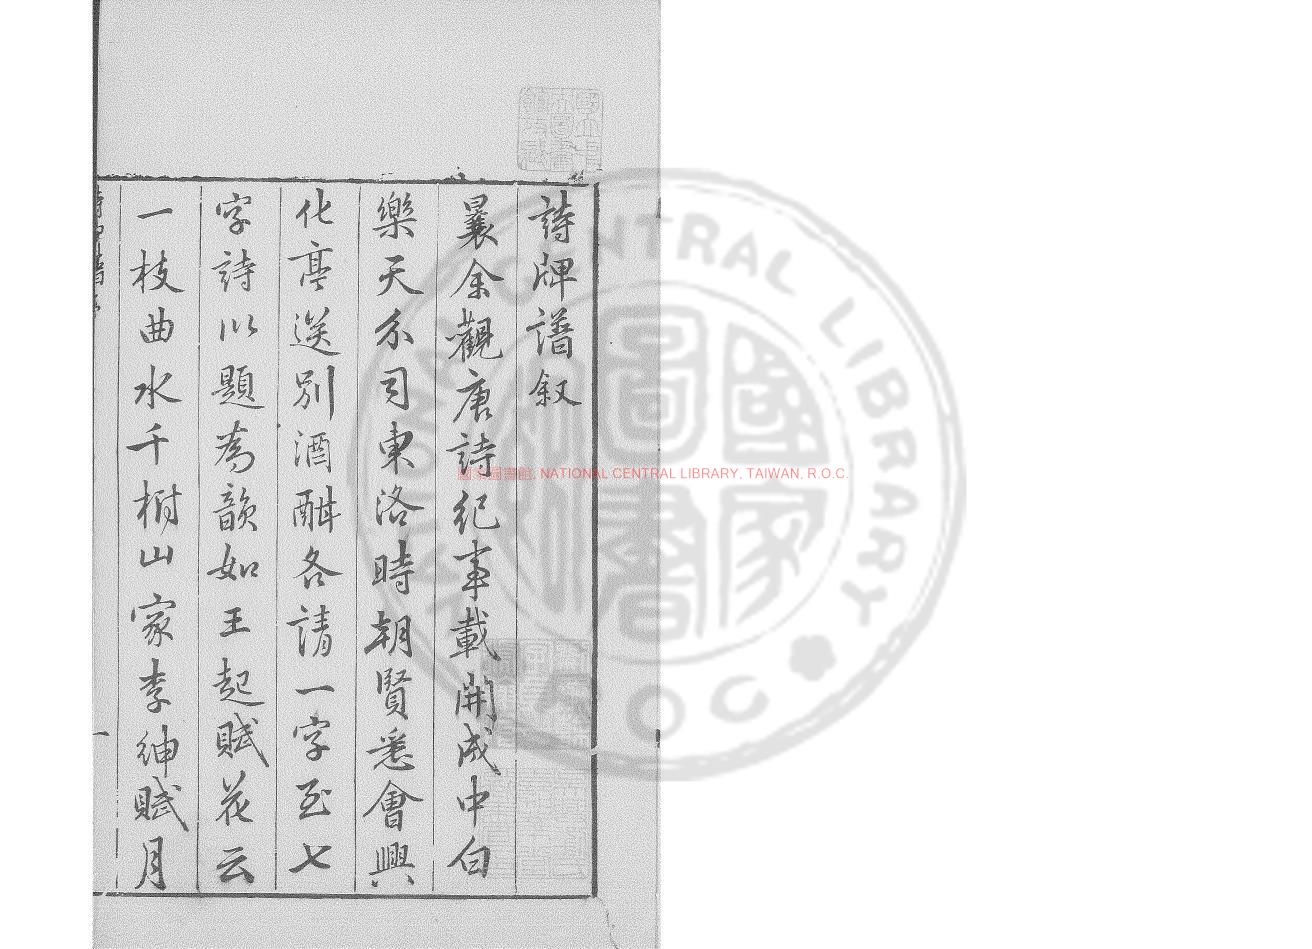 詩牌譜叙
曩余觀唐詩紀事載開成中白
樂天分司東洛時朝賢悉會興
化亭送別酒酣各請一字至七
字詩以題為韻如王起賦花云
一枝曲水千樹山家李紳賦月
一
國家圖書館, NATIONAL CENTRAL LIBRARY, TAIWAN, R.O.C.
NATIONAL CENTRAL LIBRARY
ROC
國家圖書